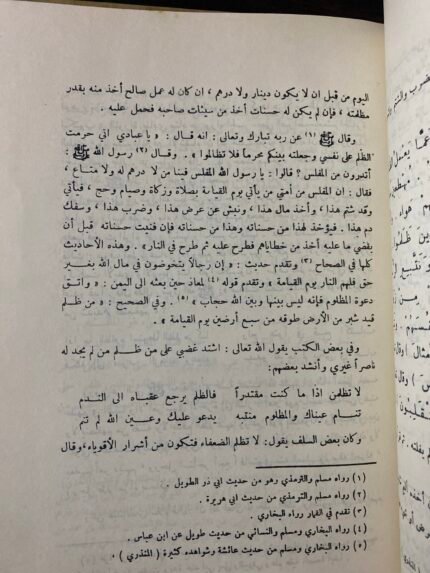 اليوم من قبل ان لا يكون دينار ولا درهم ، ان كان له عمل صالح أخذ منه بقدر
مظلمته ، فإن لم يكن له حسنات أخذ من سيئات صاحبه فحمل عليه .
وقال ﷺ (١) عن ربه تبارك وتعالى : انه قال : « يا عبادي اني حرمت
الظلم على نفسي وجعلته بينكم محرماً فلا تظالموا » . وقال (٢) رسول الله ﷺ :
أتدرون من المفلس ؟ قالوا : يا رسول الله المفلس فينا من لا درهم له ولا متاع ،
فقال : ان المفلس من أمتي من يأتي يوم القيامة بصلاة وزكاة وصيام وحج ، فيأتي
وقد شتم هذا ، وأخذ مال هذا ، ونبش عن عرض هذا ، وضرب هذا ، وسفك
دم هذا . فيؤخذ لهذا من حسناته وهذا من حسناته فإن فنيت حسناته قبل أن
يقضي ما عليه أخذ من خطاياهم فطرح عليه ثم طرح في النار» . وهذه الأحاديث
كلها في الصحاح (٣) وتقدم حديث : « إن رجالاً يتخوضون في مال الله بغير
حق فلهم النار يوم القيامة » وتقدم قوله (٤) لمعاذ حين بعثه الى اليمن : « واتق
دعوة المظلوم فإنه ليس بينها وبين الله حجاب » (٥) . وفي الصحيح : « من ظلم
قيد شبر من الأرض طوقه من سبع أرضين يوم القيامة » .
وفي بعض الكتب يقول الله تعالى : اشتد غضبي على من ظلم من لم يجد له
ناصراً غيري وأنشد بعضهم:
لا تظلمن اذا ما كنت مقتدراً فالظلم يرجع عقباه الى الندم
تنام عيناك والمظلوم منتبه يدعو عليك وعين الله لم تنم
وكان بعض السلف يقول: لا تظلم الضعفاء فتكون من أشرار الأقوياء، وقال
(١) رواه مسلم والترمذي وهو من حديث ابي ذر الطويل .
(٢) رواه مسلم والترمذي من حديث ابي هريرة .
(٣) تقدم في القمار رواه البخاري .
(٤) رواه البخاري ومسلم والنسائي من حديث طويل عن ابن عباس .
(٥) رواه البخاري ومسلم من حديث عائشة وشواهده كثيرة ( المنذري ) .